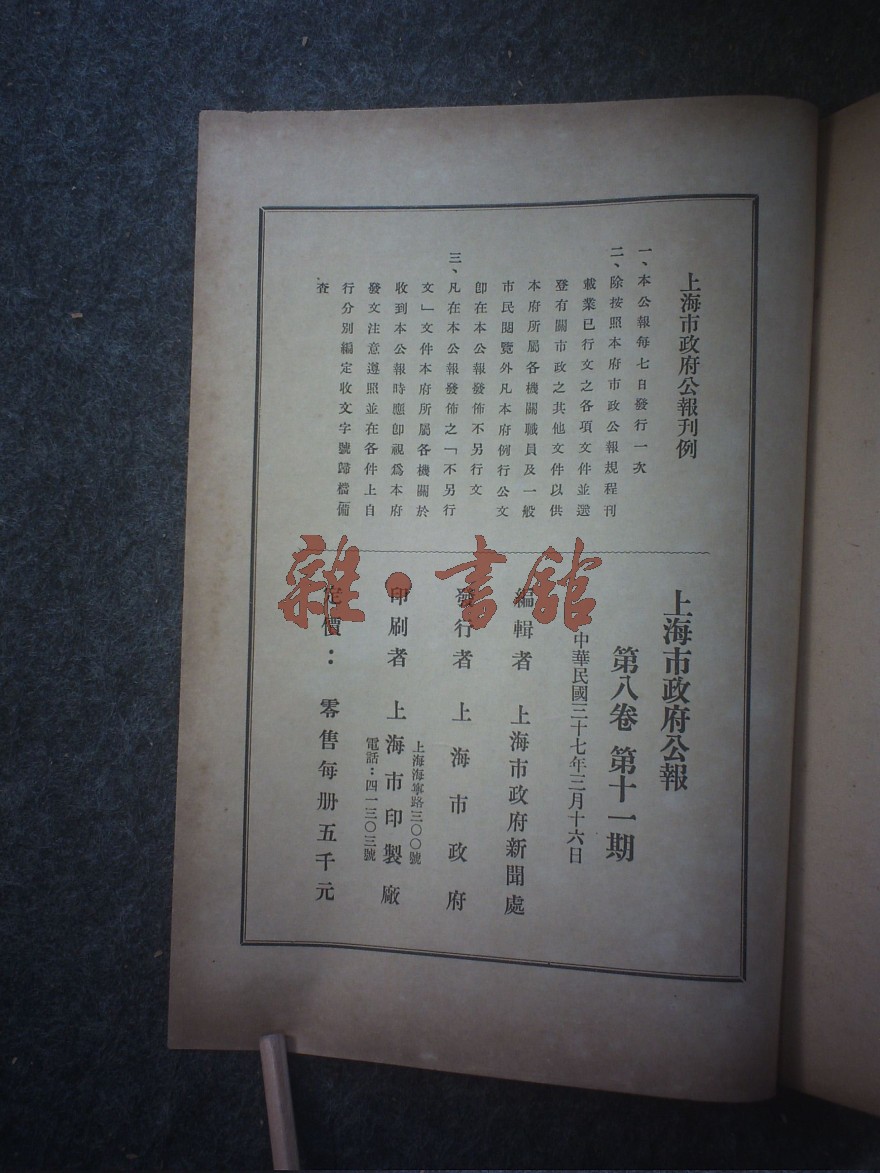 上海市政府公報刊例
一、本公報每七日發行一次
二、除按照本府市政公報規程刊
載業已行文之各項文件並選
登有關市政之其他文件以供
本府所屬各機關職員及一般
市民閱覽外凡本府例行公文
卽在本公報發佈不另行文
三、凡在本公報發佈之「不另行
文」文件本府所屬各機關於
收到本公報時應卽視爲本府
發文注意遵照並在各件上自
行分別編定收文字號歸檔備
查
上海市政府公報
第八卷 第十一期
中華民國三十七年三月十六日
編輯者 上海市政府新聞處
發行者 上海市政府
上海海寧路三〇〇號
印刷者 上海市印製廠
電話：四一三〇三號
定價： 零售每册五千元
雜·書館